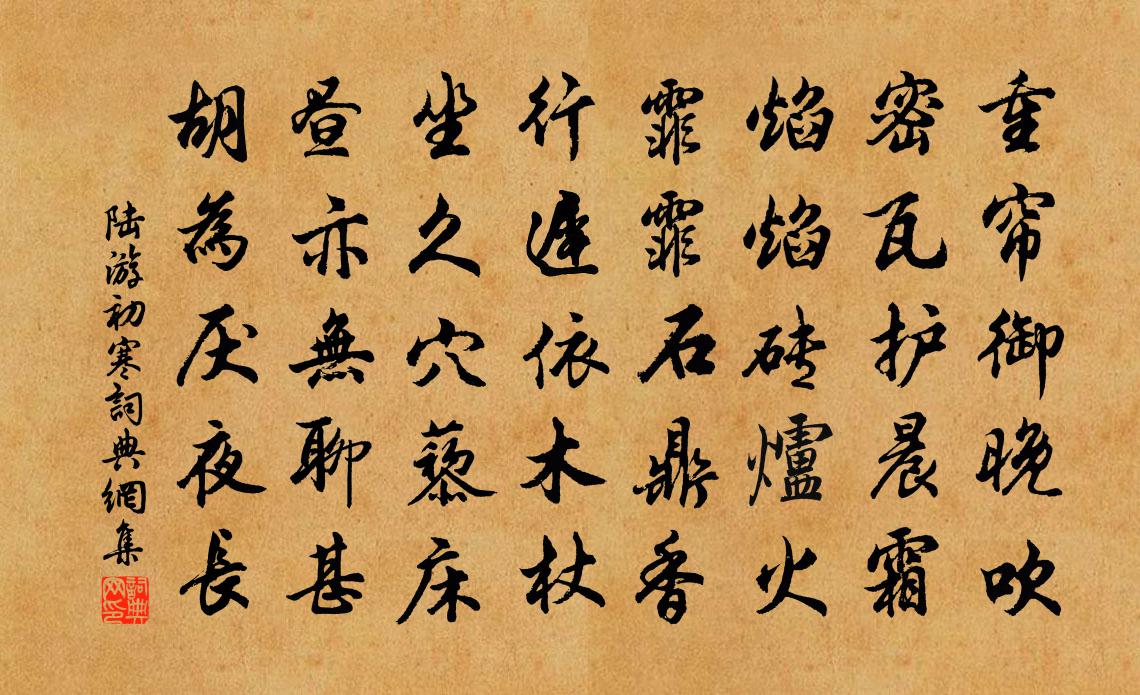 重帘御晚吹
密瓦护晨霜
焰焰砖爐火
霏霏石鼎香
行遲依木杖
坐久穴藜床
昼亦無聊甚
胡為厌夜長
陆游初寒詞典網集
詞典网印